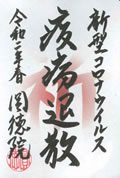 新型コロナウイルス
疫病退散
令和二年春 圓徳院